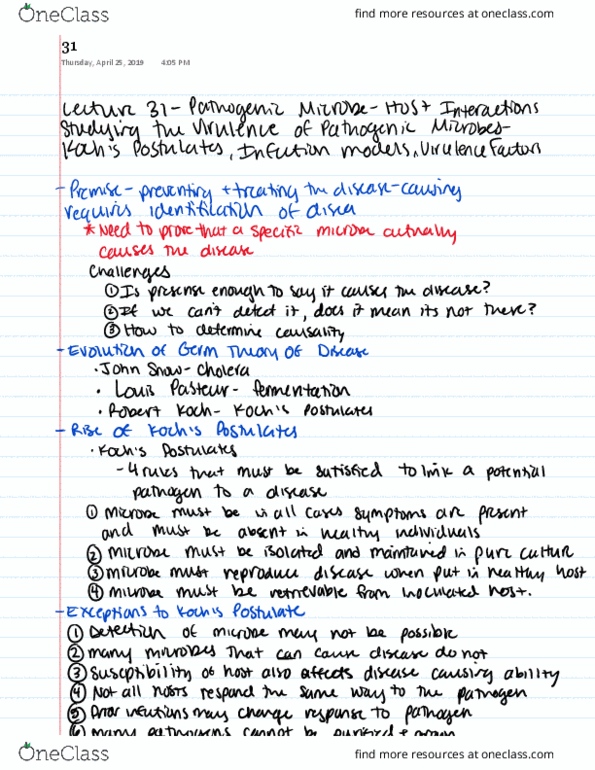 OneClass
find more resources at oneclass.com
31
Thursday, April 25, 2019 4:05 PM
Lecture 31 - Pathogenic Microbe - Host Interactions
Studying the Virulence of Pathogenic Microbes -
Koch's Postulates, Infection models, Virulence Factors
- Premise - preventing + treating the disease-causing
requires identification of disea
* Need to prove that a specific microbe actually
causes the disease
Challenges
① Is presense enough to say it causes the disease?
② If we can't detect it, does it mean its not there?
③ How to determine causality
- Evolution of Germ Theory of Disease
· John Snow - Cholera
· Louis Pasteur - fermentation
· Robert Koch - Koch's Postulates
- Rise of Koch's Postulates
· Koch's Postulates
- 4 rules that must be satisfied to link a potential
pathogen to a disease
① microbe must be in all cases symptoms are present
and must be absent in healthy individuals
② microbe must be isolated and maintained in pure culture
③ microbe must reproduce disease when put in healthy host
④ microbe must be retrievable from inoculated host.
- Exceptions to Koch's Postulate
① Detection of microbe may not be possible
② many microbes that can cause disease do not
③ Susceptibility of host also affects disease causing ability
④ Not all hosts respond the same way to the pathogen
⑤ Prior infections may change response to pathogen
⑥ many pathogens cannot be purified + grown
OneClass
find more resources at oneclass.com